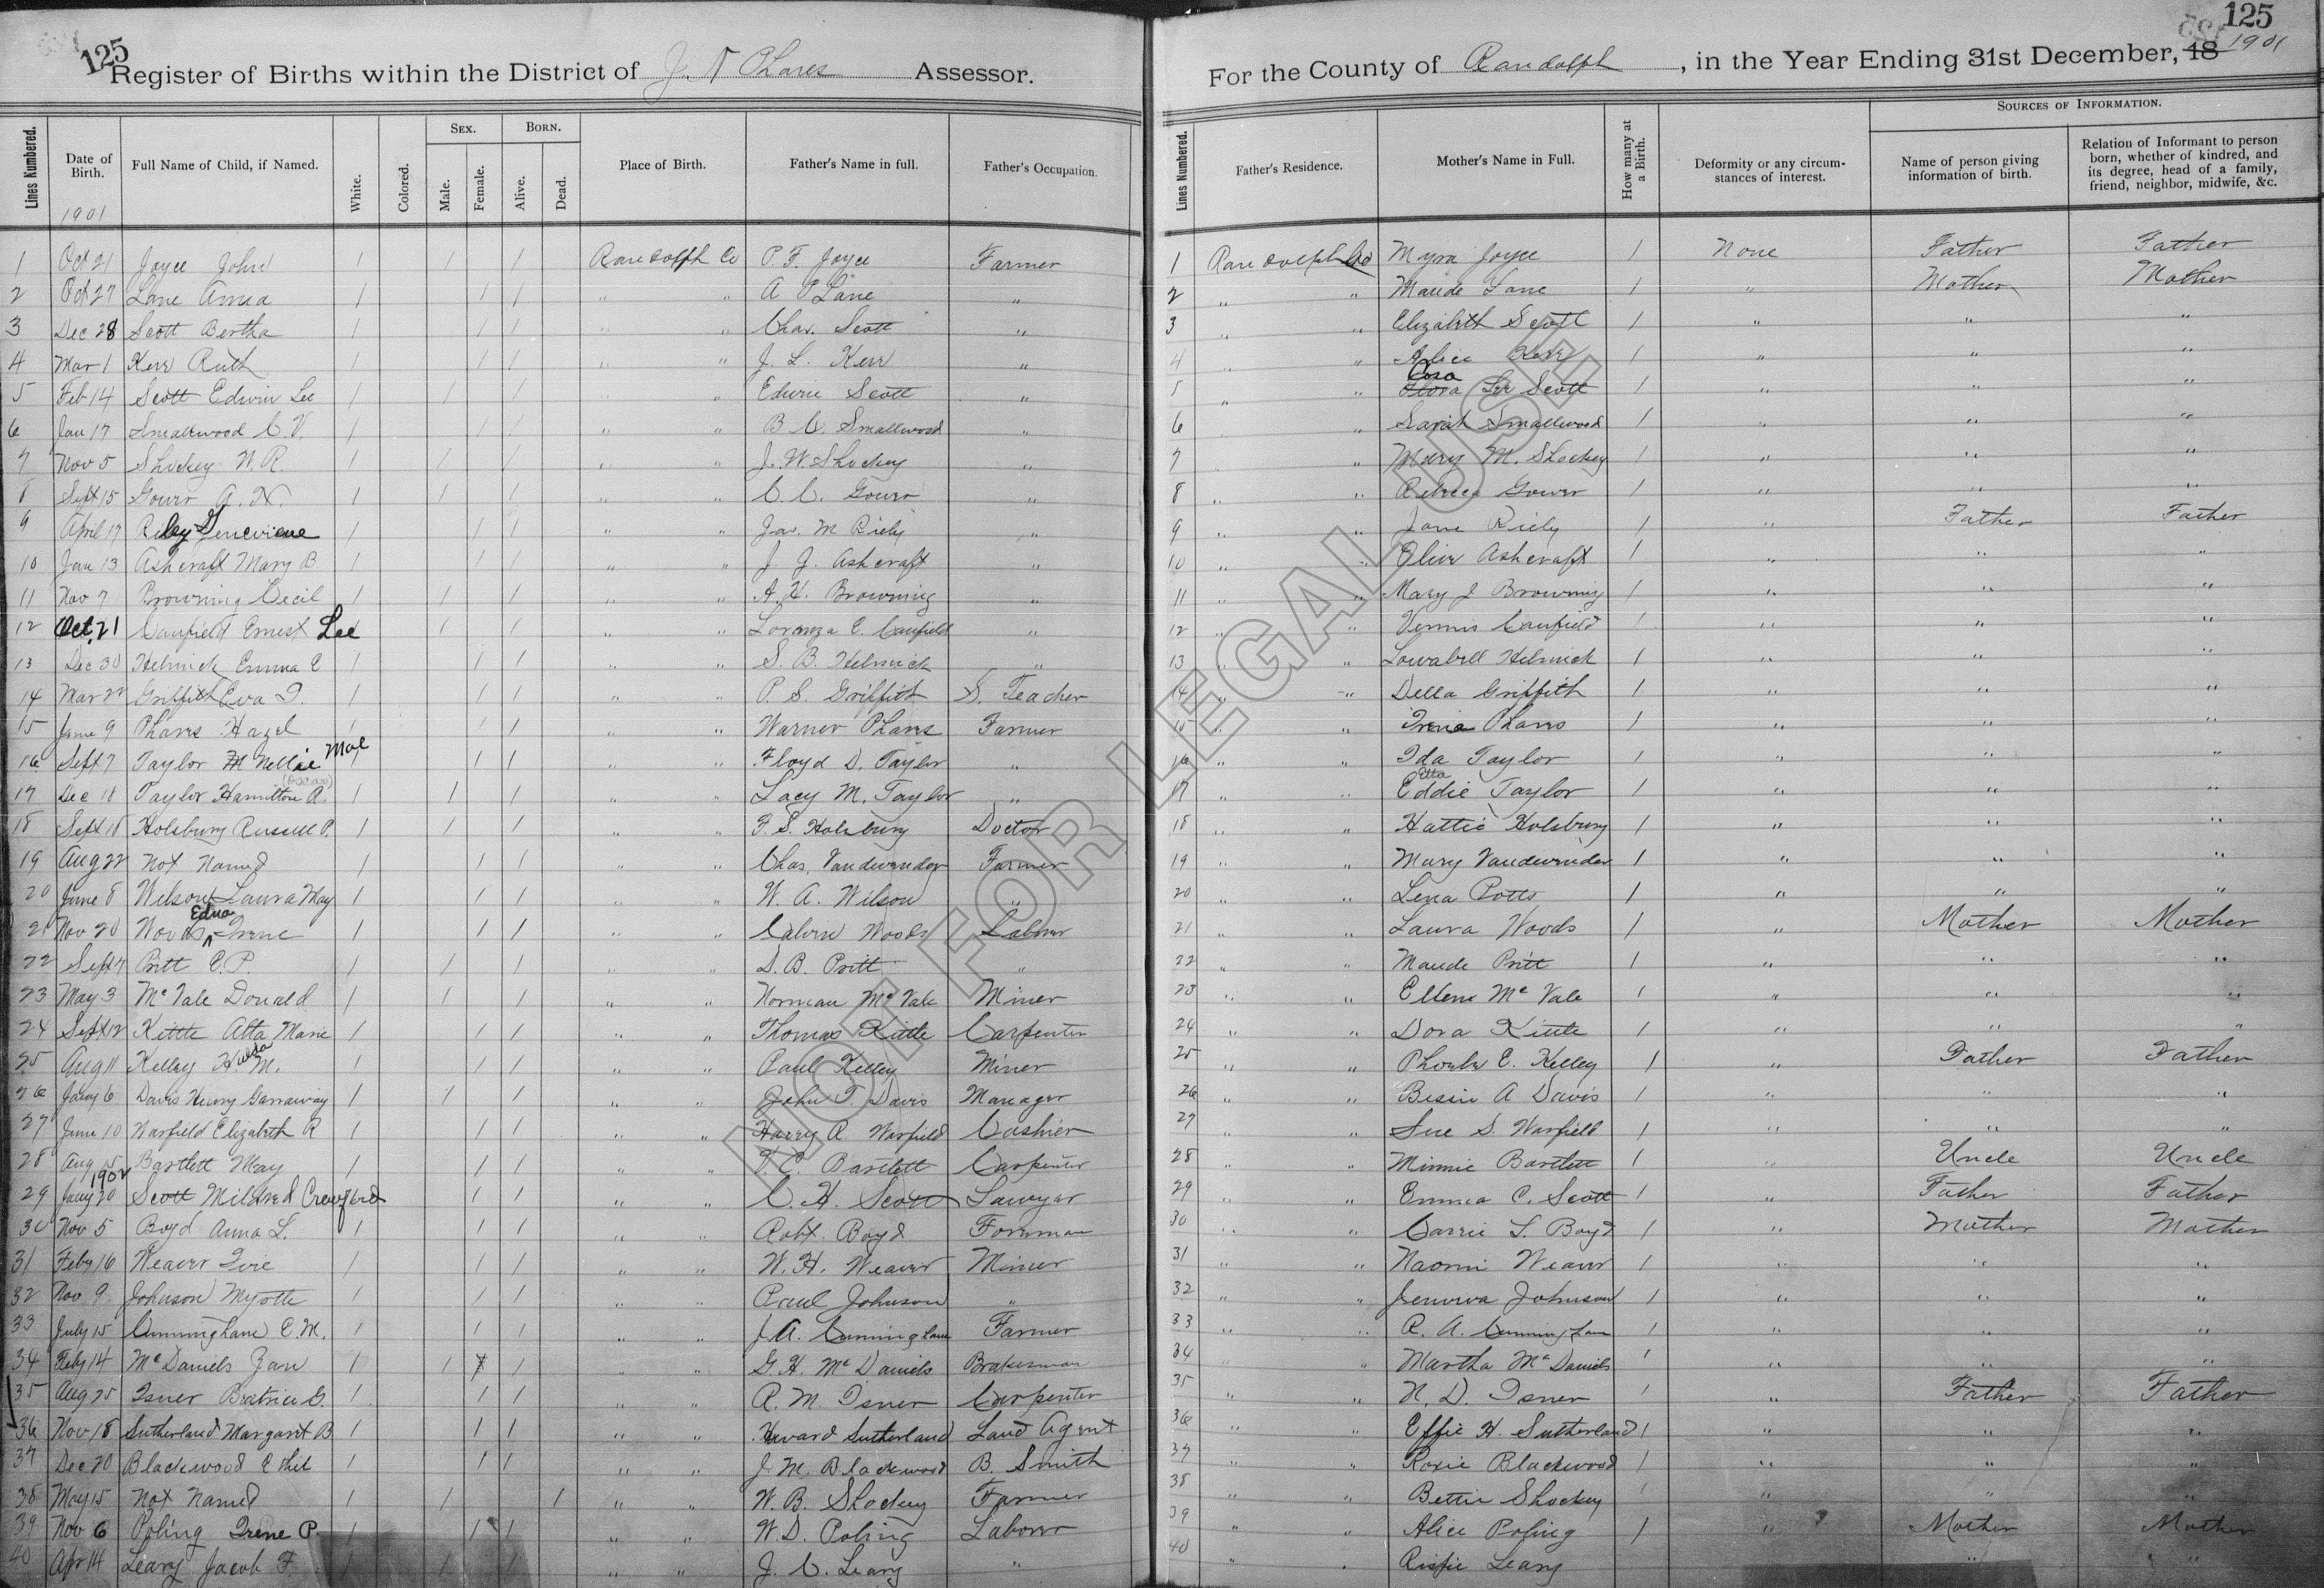 125
Register of Births within the District of J. N Phares Assessor.
125
For the County of Randolph, in the Year Ending 31st December, 18 1901
Lines Numbered. Date of Birth. Full Name of Child, if Named. White. Colored. Sex. Male. Female. Born. Alive. Dead. Place of Birth. Father's Name in full. Father's Occupation.
Lines Numbered. Father's Residence. Mother's Name in Full. How many at a Birth. Deformity or any circumstances of interest. Sources of Information. Name of person giving information of birth. Relation of Informant to person born, whether of kindred, and its degree, head of a family, friend, neighbor, midwife, &c.
1901
1 Oct 21 Joyce John 1 1 1 Randolph Co P. F. Joyce Farmer 1 Randolph Co Myra Joyce 1 None Father Father
2 Oct 27 Lane Anna 1 1 1 " " A P Lane " 2 " " Maude Lane 1 " Mother Mother
3 Dec 28 Scott Bertha 1 1 1 " " Chas. Scott " 3 " " Elizabeth Scott 1 " " "
4 Mar 1 Kerr Ruth 1 1 1 " " J. L. Kerr " 4 " Alice Kerr 1 " " "
5 Feb 14 Scott Edwin Lee 1 1 1 " " Edwin Scott " 5 " " Cora Flora Lee Scott 1 " " "
6 Jan 17 Smallwood C. V. 1 1 1 " " B. C. Smallwood " 6 " Sarah Smallwood 1 " " "
7 Nov 5 Shockey W. R. 1 1 1 " " J. W. Shockey " 7 " Mary M. Shockey 1 " " "
8 Sept 15 Gower A. N. 1 1 1 " " C. C. Gower " 8 " " Rebecca Gower 1 " " "
9 April 17 Riley Genevieve 1 1 1 " " Jas. M Riely " 9 " " Jane Riely 1 " Father Father
10 Jan 13 Ashcraft Mary B. 1 1 1 " " J. J. Ashcraft " 10 " " Olive Ashcraft 1 " " "
11 Nov 7 Browning Cecil 1 1 1 " " A. H. Browning " 11 " " Mary J Browning 1 " " "
12 Oct. 21 Caufield Ernest Lee 1 1 1 " " Loranza E. Caufield " 12 " " Vennis Caufield 1 " " "
13 Dec 30 Helmick Emma E 1 1 1 " " S. B. Helmick " 13 " " Lowabell Helmick 1 " " "
14 Mar 22 Griffith Eva I. 1 1 1 " " P. S. Griffith S. Teacher 14 " " Della Griffith 1 " " "
15 June 9 Phares Hazel 1 1 1 " " Warner Phares Farmer 15 " " Irena Phares 1 " " "
16 Sept 7 Taylor M Nellie Mae 1 1 1 " " Floyd D. Taylor " 16 " " Ida Taylor 1 " " "
17 Dec 18 Taylor Hamilton R. 1 1 1 " " Lacy M. Taylor " 17 " " Etta Eddie Taylor 1 " " "
18 Sept 18 Holsbury Russell P. 1 1 1 " " F. S. Holsbury Doctor 18 " " Hattie Holsbury 1 " " "
19 Aug 22 Not Named 1 1 1 " " Chas. Vandevender Farmer 19 " " Mary Vandevender 1 " " "
20 June 8 Wilson Laura May 1 1 1 " " W. A. Wilson " 20 " " Lena Potts 1 " " "
21 Nov 20 Woods Edna Irene 1 1 1 " " Calvin Woods Labrer 21 " " Laura Woods 1 " Mother Mother
22 Sept 7 Pritt E. P. 1 1 1 " " D. B. Pritt " 22 " " Maude Pritt 1 " " "
23 May 3 McVale Donald 1 1 1 " " Norman McVale Miner 23 " " Ellene McVale 1 " " "
24 Sept 12 Kittle Atta Marie 1 1 1 " " Thomas Kittle Carpenter 24 " " Dora Kittle 1 " " "
25 Aug 11 Kelley Hulda M. 1 1 1 " " Paul Kelley Miner 25 " " Phoebe E. Kelley 1 " Father Father
26 Jany 6 Davis Henry Garraway 1 1 1 " " John T. Davis Manager 26 " " Bessie A Davis 1 " " "
27 June 10 Warfield Elizabeth R 1 1 1 " " Harry R. Warfield Cashier 27 " " Sue S. Warfield 1 " " "
28 Aug 15 Bartlett May 1 1 1 " " Bartlett Carpenter 28 " " Minnie Bartlett 1 " Uncle Uncle
29 Jany 20 1902 Scott Mildred Crawford 1 1 " " C. H. Scott Lawyer 29 " " Emma C. Scott 1 " Father Father
30 Nov 5 Boyd Anna L. 1 1 1 " " Robt. Boyd Foreman 30 " " Carrie L. Boyd 1 " Mother Mother
31 Feby 16 Weaver 1 1 1 " " W. H. Weaver Miner 31 " " Naomi Weaver 1 " " "
32 Nov 9 Johnson Myrtle 1 1 1 " " Paul Johnson " 32 " " Jeneva Johnson 1 " " "
33 July 15 Cunningham E. M. 1 1 1 " " J. A. Cunningham Farmer 33 " " R. A. Cunningham 1 " " "
34 Feby 14 McDaniels Zan 1 1 1 " " G. H. McDaniels Brakesman 34 " " Martha McDaniels 1 " " "
35 Aug 25 Isner Beatrice G. 1 1 1 " " R. M. Isner Carpenter 35 " " N. D. Isner 1 " Father Father
36 Nov 18 Sutherland Margaret B 1 1 1 " " Howard Sutherland Land Agent 36 " " Effie H. Sutherland 1 " " "
37 Dec 20 Blackwood Ethel 1 1 1 " " J. M. Blackwood B. Smith 37 " " Rosie Blackwood 1 " " "
38 May 15 Not Named 1 1 1 " " W. B. Shockey Farmer 38 " " Bettie Shockey 1 " " "
39 Nov 6 Poling Irene P. 1 1 1 " " W. D. Poling Laborer 39 " " Alice Poling 1 " Mother Mother
40 Apr 14 Leary Jacob F. 1 1 1 " " J. C. Leary " 40 " " Leary " "
NOT FOR LEGAL USE